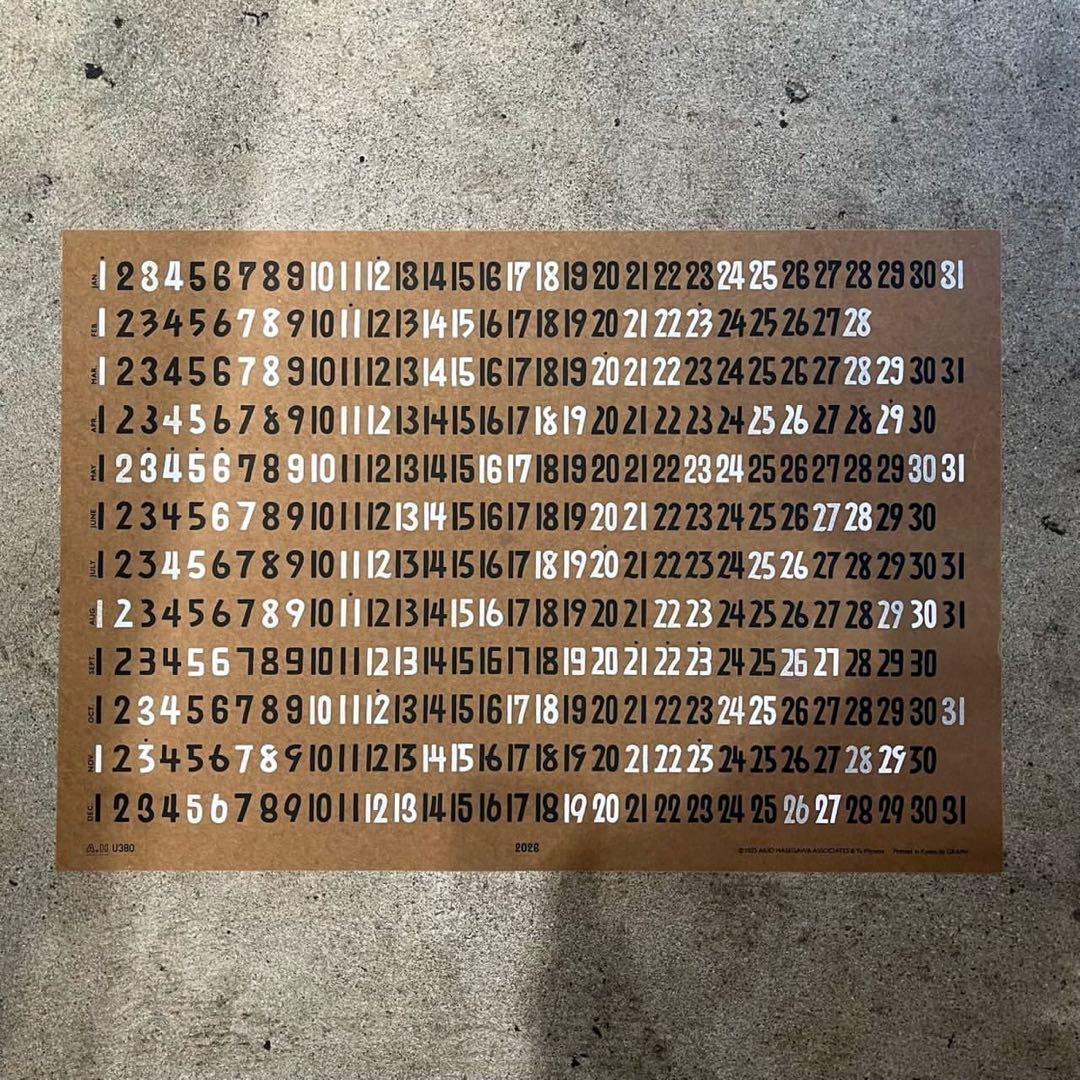 JAN. 1 2 3 4 5 6 7 8 9 10 11 12 13 14 15 16 17 18 19 20 21 22 23 24 25 26 27 28 29 30 31
FEB. 1 2 3 4 5 6 7 8 9 10 11 12 13 14 15 16 17 18 19 20 21 22 23 24 25 26 27 28
MAR. 1 2 3 4 5 6 7 8 9 10 11 12 13 14 15 16 17 18 19 20 21 22 23 24 25 26 27 28 29 30 31
APR. 1 2 3 4 5 6 7 8 9 10 11 12 13 14 15 16 17 18 19 20 21 22 23 24 25 26 27 28 29 30
MAY 1 2 3 4 5 6 7 8 9 10 11 12 13 14 15 16 17 18 19 20 21 22 23 24 25 26 27 28 29 30 31
JUNE 1 2 3 4 5 6 7 8 9 10 11 12 13 14 15 16 17 18 19 20 21 22 23 24 25 26 27 28 29 30
JULY 1 2 3 4 5 6 7 8 9 10 11 12 13 14 15 16 17 18 19 20 21 22 23 24 25 26 27 28 29 30 31
AUG. 1 2 3 4 5 6 7 8 9 10 11 12 13 14 15 16 17 18 19 20 21 22 23 24 25 26 27 28 29 30 31
SEPT. 1 2 3 4 5 6 7 8 9 10 11 12 13 14 15 16 17 18 19 20 21 22 23 24 25 26 27 28 29 30
OCT. 1 2 3 4 5 6 7 8 9 10 11 12 13 14 15 16 17 18 19 20 21 22 23 24 25 26 27 28 29 30 31
NOV. 1 2 3 4 5 6 7 8 9 10 11 12 13 14 15 16 17 18 19 20 21 22 23 24 25 26 27 28 29 30
DEC. 1 2 3 4 5 6 7 8 9 10 11 12 13 14 15 16 17 18 19 20 21 22 23 24 25 26 27 28 29 30 31
A.H U380 2026 HASEGAWA ASSOCIATES & Printed in Kyoto by GRAPH